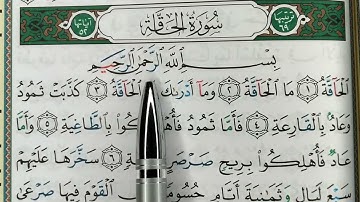 ترتيبها ٦٩ سُورَةُ الْحَاقَّةِ آياتها ٥٢
بِسْمِ اللَّهِ الرَّحْمَٰنِ الرَّحِيمِ
الْحَاقَّةُ ١ مَا الْحَاقَّةُ ٢ وَمَا أَدْرَىٰكَ مَا الْحَاقَّةُ ٣ كَذَّبَتْ ثَمُودُ
وَعَادٌ بِالْقَارِعَةِ ٤ فَأَمَّا ثَمُودُ فَأُهْلِكُوا بِالطَّاغِيَةِ ٥ وَأَمَّا
عَادٌ فَأُهْلِكُوا بِرِيحٍ صَرْصَرٍ ٦ سَخَّرَهَا عَلَيْهِمْ
سَبْعَ لَيَالٍ وَثَمَٰنِيَةَ أَيَّامٍ حُسُومًا الْقَوْمَ فِيهَا صَرْعَىٰ